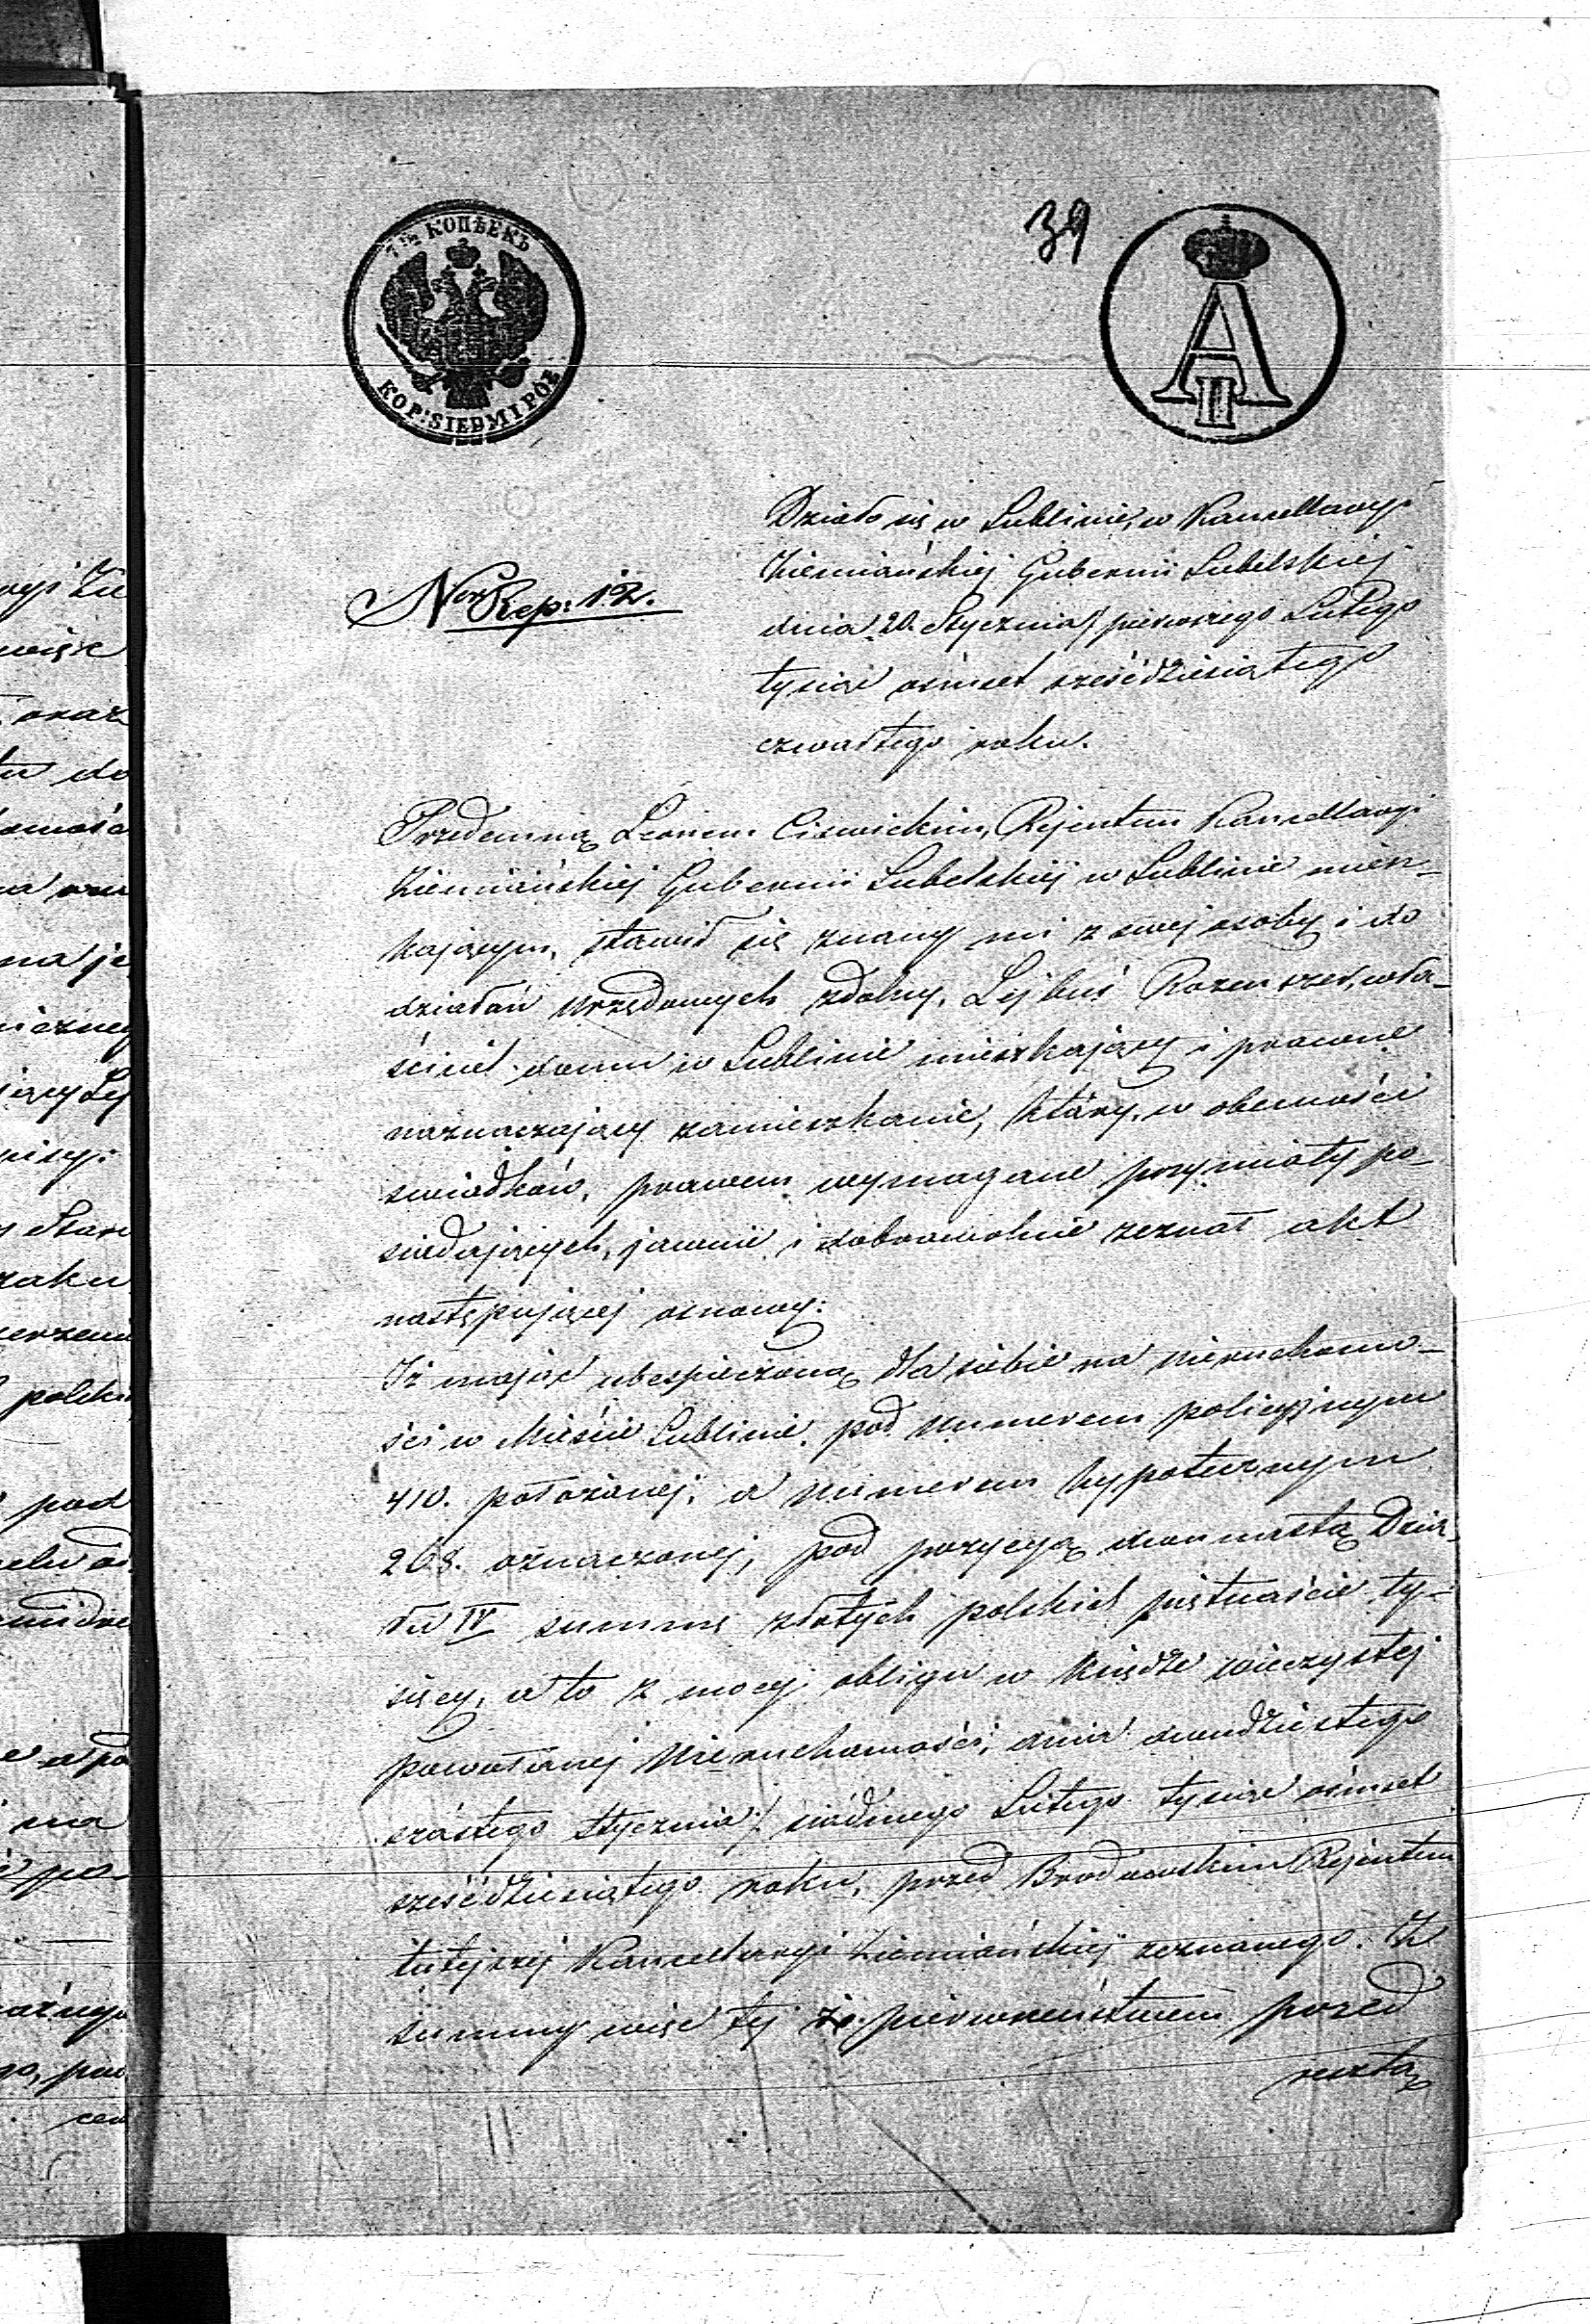 39
7 1/2 КОПѢЕКЪ
KOP: SIEDM I PÓŁ
A II
Działo się w Lublinie, w Kancellaryi
Ziemiańskiej Gubernii Lubelskiej
Ner Rep: 12.
dnia 20. Stycznia/ pierwszego Lutego
tysiąc ośmset sześćdziesiątego
czwartego roku.
Przedemną Leonem Ciświckim, Rejentem Kancellaryi
Ziemiańskiej Gubernii Lubelskiej w Lublinie miesz-
kającym, stawił się znany mi z swej osoby i do
działań urzędowych zdolny, Lejbuś Rozenszer, wła-
ściciel domu w Lublinie mieszkający i prawne
naznaczający zamieszkanie, który, w obecności
świadków, prawem wymagane przymioty po-
siadających, jawnie i dobrowolnie zeznał akt
następującej osnowy:
Iż mając ubespieczoną dla siebie na nieruchomo-
ści w Mieście Lublinie, pod numerem policyjnym
410. położonej, a numerem hypotecznym
268. oznaczonej, pod pozycyą dwunastą Dzia-
łu IV summę złotych polskich piętnaście ty-
sięcy, a to z mocy obligu w księdze wieczystej
powołanej Nieruchomości, dnia dwudziestego
szóstego Stycznia/ siódmego Lutego tysiąc ośmset
sześćdziesiątego roku, przed Brodowskim Rejentem
tutejszej Kancellaryi Ziemiańskiej zeznanego. Z
summy więc tej ze pierwszeństwem przed
resztą